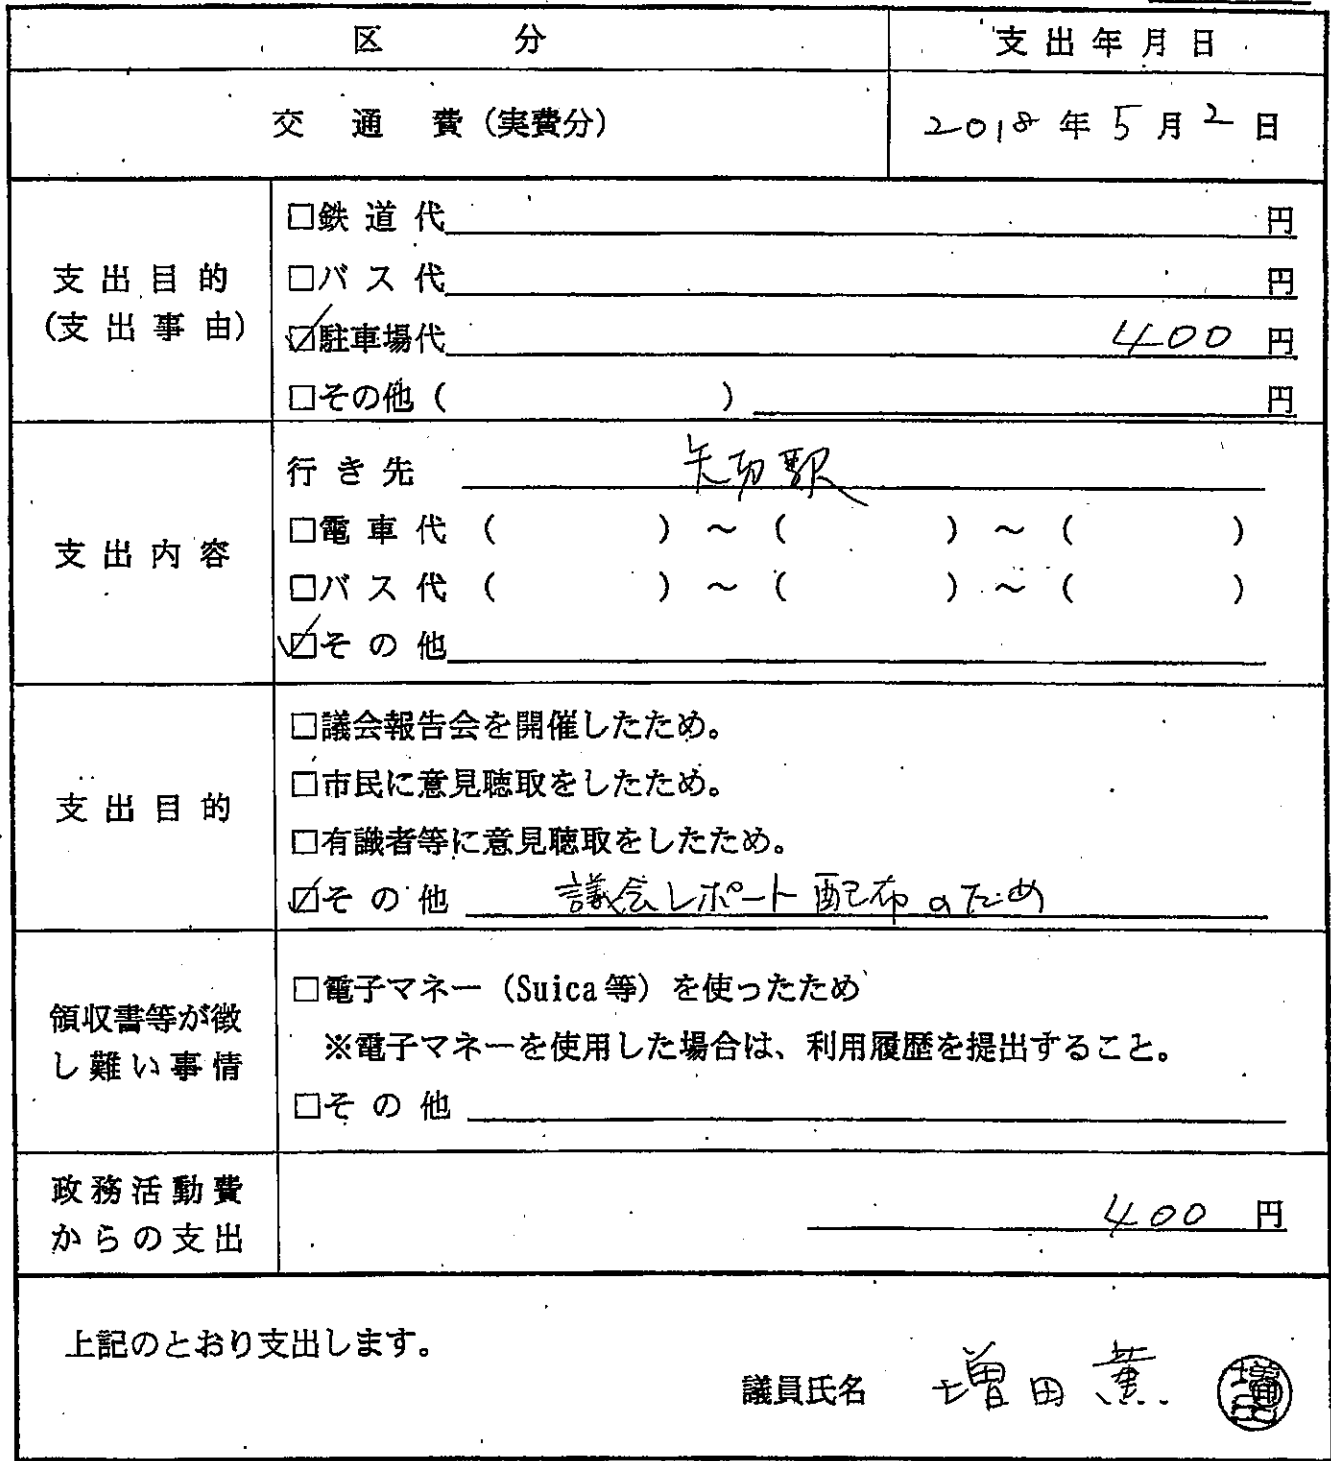 区 分 支出年月日
交 通 費（実費分） 2018年5月2日
支出目的
（支出事由）
□鉄道代 円
□バス代 円
☑駐車場代 400円
□その他（ ） 円
支出内容
行き先 矢切駅
□電車代（ ）～（ ）～（ ）
□バス代（ ）～（ ）～（ ）
☑その他
支出目的
□議会報告会を開催したため。
□市民に意見聴取をしたため。
□有識者等に意見聴取をしたため。
☑その他 議会レポート配布のため
領収書等が徴
し難い事情
□電子マネー（Suica等）を使ったため
※電子マネーを使用した場合は、利用履歴を提出すること。
□その他
政務活動費
からの支出
400円
上記のとおり支出します。
議員氏名 増田薫 増田